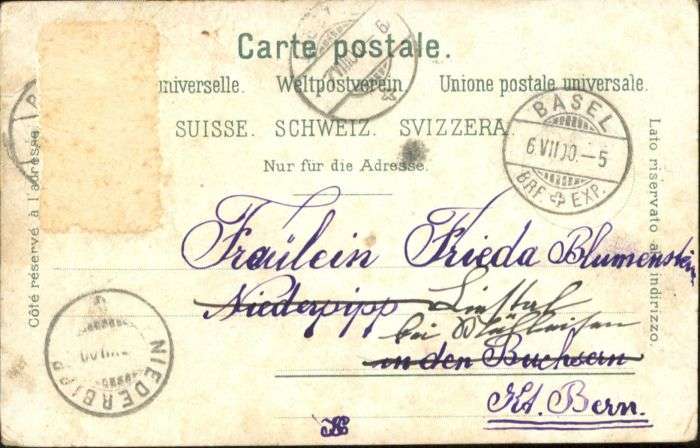 Carte postale.
universelle. Weltpostverein. Unione postale universale.
SUISSE. SCHWEIZ. SVIZZERA.
Nur für die Adresse.
Côté réservé à l'adresse.
Lato riservato all'indirizzo.
BASEL
6 VII 00.-5
BRF. EXP.
Fräulein Frieda Blumenstein
Niederpipp Liestal
bei
in den Buchsern
Kt. Bern.
NIEDERBIPP